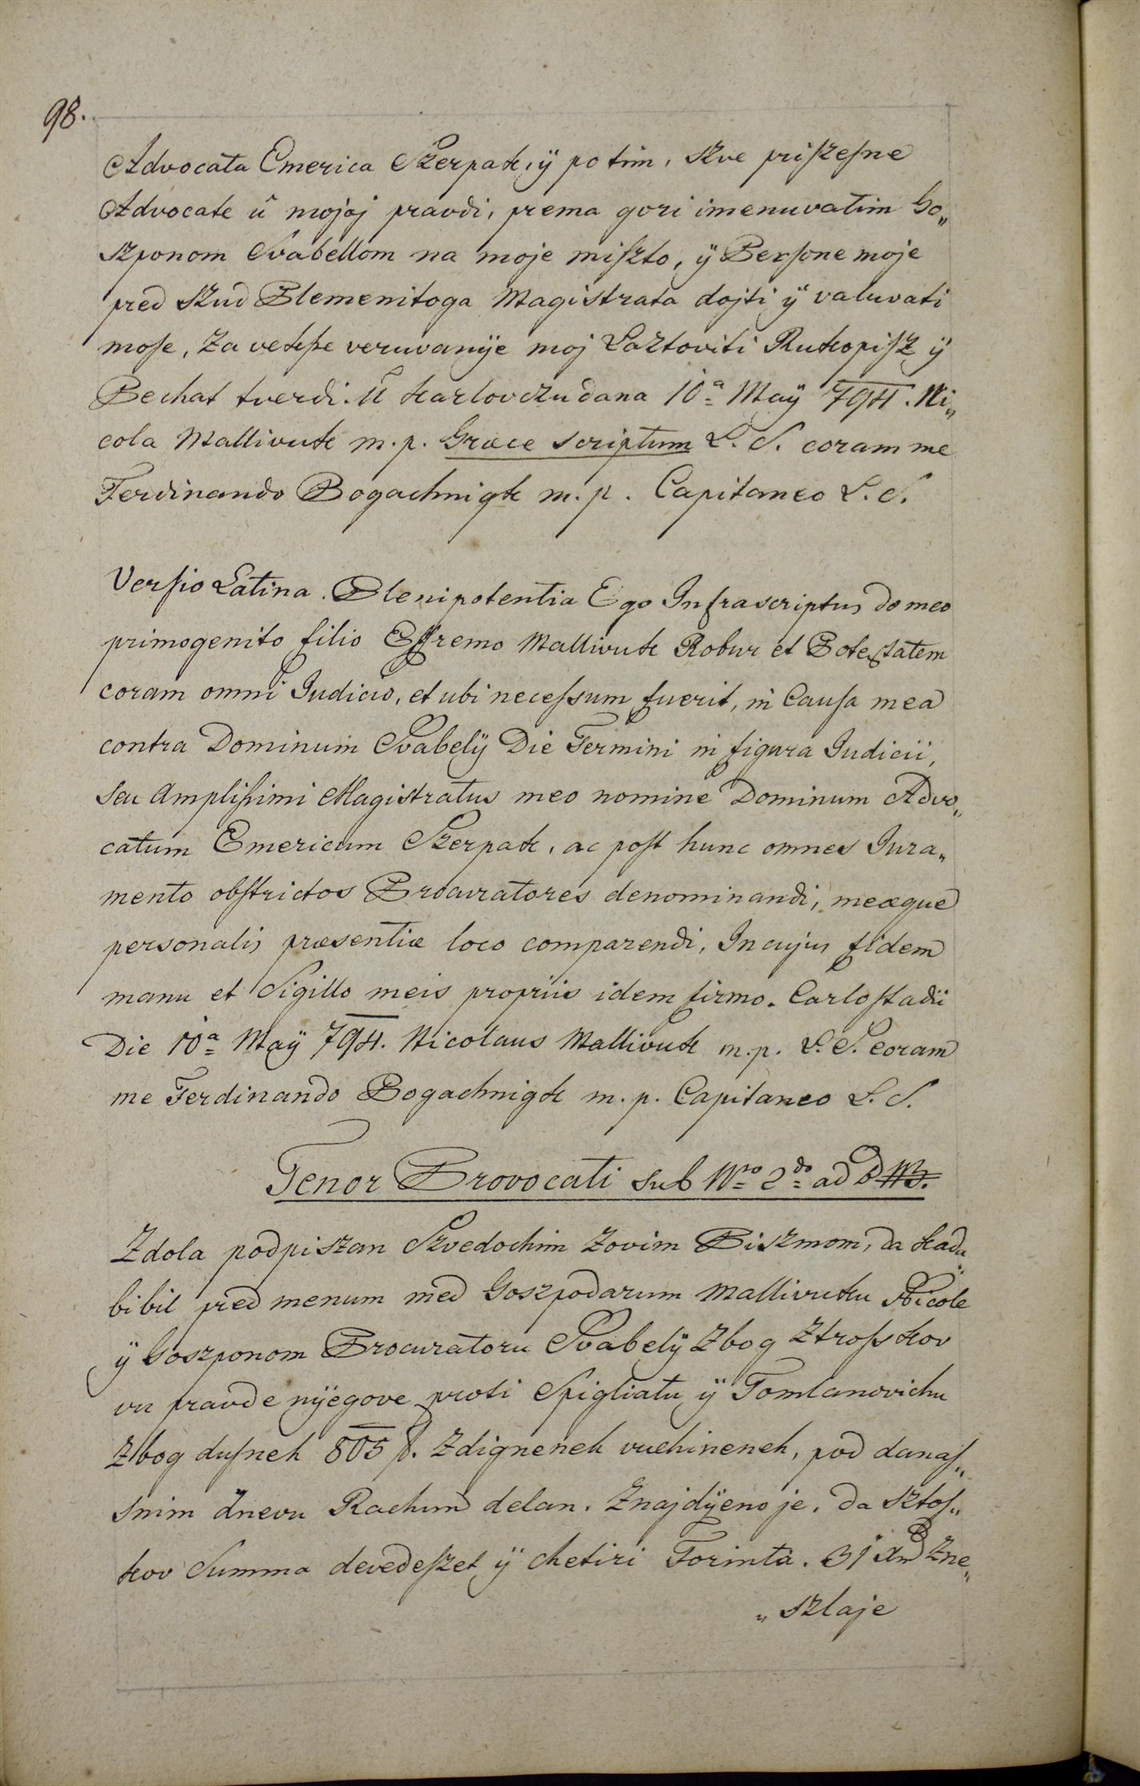 98.
Advocata Emerica Szerpak, ÿ potim, szve priszesne
Advocate ú mojoj pravdi, prema gori imenuvatim Go„
szponom Svabellom na moje miszto, ÿ Persone moje
pred szud Plemenitoga Magistrata dojti ÿ valuvati
mose, za vekse veruvanÿe moj Lasztoviti Rukopisz ÿ
Pechat tverdi. Ú Karlovczu dana 10ª Maÿ 794. Ni„
cola Mallivuk m. p. Græce scriptum L. S. coram me
Ferdinando Bogachnigk m. p. Capitaneo L. S.
Versio Latina. Plenipotentia Ego Infrascriptus do meo
primogenito filio Effremo Mallivuk Robur et Potestatem
coram omni Judicio, et ubi necessum fuerit, in Causa mea
contra Dominum Svabelÿ Die Termini in figura Judicii,
seu Amplissimi Magistratus meo nomine Dominum Advo„
catum Emericum Szerpak, ac post hunc omnes Jura„
mento obstrictos Procuratores denominandi, meæque
personalis præsentiæ loco comparendi, In cujus fidem
manu et Sigillo meis propriis idem firmo. Carlostadii
Die 10ª Maÿ 794. Nicolaus Mallivuk m. p. L. S. coram
me Ferdinando Bogachnigk m. p. Capitaneo L. S.
Tenor Provocati sub Nro 2do ad
Zdola podpiszan Szvedochim zovim Piszmom, da kada
bi bil pred menum med Goszpodarum Mallivuku Nicole
ÿ Goszponom Procuratoru Svabelÿ zbog ztrosskov
vu pravde nÿegove proti Spigliatu ÿ Tomlanovichu
zbog dusneh 805 f. zdigneneh vuchineneh, pod danas„
snim dnevu Rachun delan. Znajdÿeno je, da sztos„
kov Summa devedeszet ÿ chetiri Forinta. 31 xr zne„
„szlaje